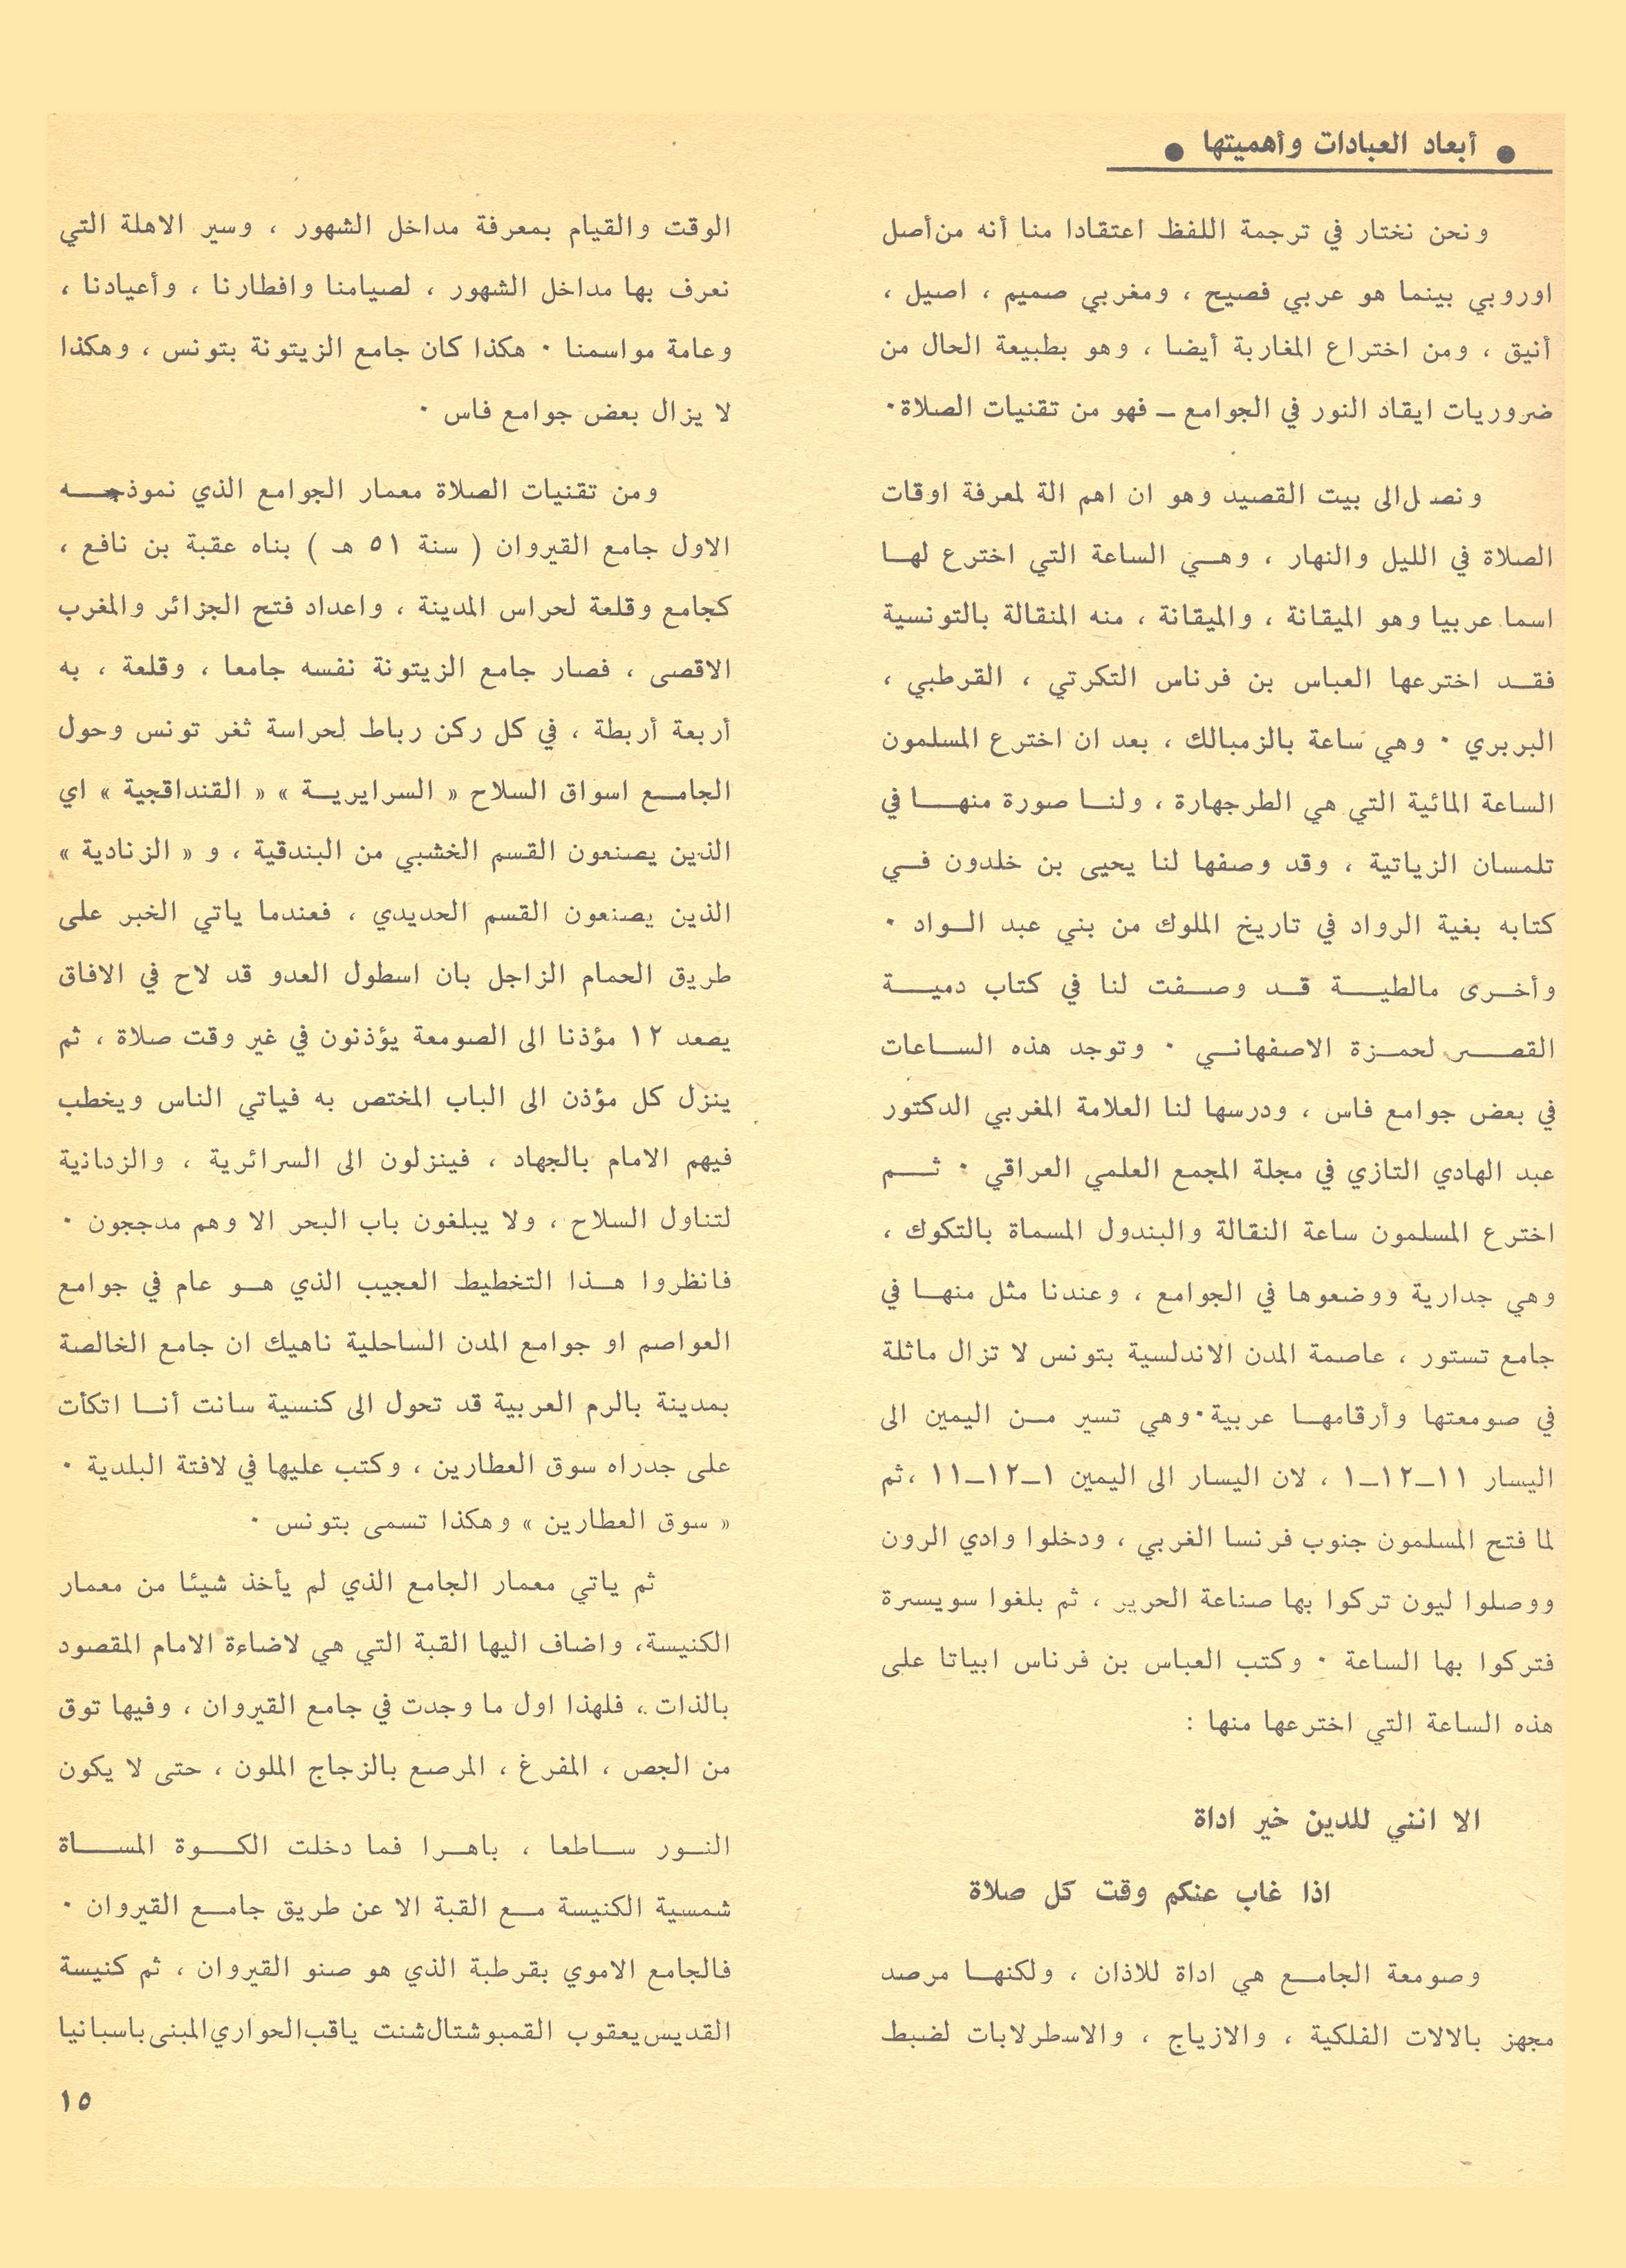 ● أبعاد العبادات وأهميتها ●
ونحن نختار في ترجمة اللفظ اعتقادا منا أنه من أصل
اوروبي بينما هو عربي فصيح ، ومغربي صميم ، اصيل ،
أنيق ، ومن اختراع المغاربة أيضا ، وهو بطبيعة الحال من
ضروريات ايقاد النور في الجوامع ــ فهو من تقنيات الصلاة.
ونصل الى بيت القصيد وهو ان اهم الة لمعرفة اوقات
الصلاة في الليل والنهار ، وهــي الساعة التي اخترع لهــا
اسما عربيا وهو الميقانة ، والميقانة ، منه المنقالة بالتونسية
فقــد اخترعها العباس بن فرناس التكرتي ، القرطبي ،
البربري . وهي ساعة بالزمبالك ، بعد ان اخترع المسلمون
الساعة المائية التي هي الطرجهارة ، ولنــا صورة منهــا في
تلمسان الزياتية ، وقد وصفها لنا يحيى بن خلدون فــي
كتابه بغية الرواد في تاريخ الملوك من بني عبد الــواد .
وأخــرى مالطيــة قــد وصــفت لنا في كتاب دميــة
القصــر لحمــزة الاصفهانــي . وتوجد هذه الســاعات
في بعض جوامع فاس ، ودرسها لنا العلامة المغربي الدكتور
عبد الهادي التازي في مجلة المجمع العلمي العراقي . ثــم
اخترع المسلمون ساعة النقالة والبندول المسماة بالتكوك ،
وهي جدارية ووضعوها في الجوامع ، وعندنا مثل منهــا في
جامع تستور ، عاصمة المدن الاندلسية بتونس لا تزال ماثلة
في صومعتها وأرقامهــا عربية.وهي تسير مــن اليمين الى
اليسار ١١ــ١٢ــ١ ، لان اليسار الى اليمين ١ــ١٢ــ١١ ،ثم
لما فتح المسلمون جنوب فرنسا الغربي ، ودخلوا وادي الرون
ووصلوا ليون تركوا بها صناعة الحرير ، ثم بلغوا سويسرة
فتركوا بها الساعة . وكتب العباس بن فرناس ابياتا على
هذه الساعة التي اخترعها منها :
الا انني للدين خير اداة
اذا غاب عنكم وقت كل صلاة
وصومعة الجامــع هي اداة للاذان ، ولكنهــا مرصد
مجهز بالالات الفلكية ، والازياج ، والاسطرلابات لضبط
الوقت والقيام بمعرفة مداخل الشهور ، وسير الاهلة التي
نعرف بها مداخل الشهور ، لصيامنا وافطارنا ، وأعيادنا ،
وعامة مواسمنا . هكذا كان جامع الزيتونة بتونس ، وهكذا
لا يزال بعض جوامع فاس .
ومن تقنيات الصلاة معمار الجوامع الذي نموذجــه
الاول جامع القيروان ( سنة ٥١ هـ ) بناه عقبة بن نافع ،
كجامع وقلعة لحراس المدينة ، واعداد فتح الجزائر والمغرب
الاقصى ، فصار جامع الزيتونة نفسه جامعا ، وقلعة ، به
أربعة أربطة ، في كل ركن رباط لحراسة ثغر تونس وحول
الجامــع اسواق السلاح « السرايريــة » « القنداقجية » اي
الذين يصنعون القسم الخشبي من البندقية ، و « الزنادية »
الذين يصنعون القسم الحديدي ، فعندما ياتي الخبر على
طريق الحمام الزاجل بان اسطول العدو قد لاح في الافاق
يصعد ١٢ مؤذنا الى الصومعة يؤذنون في غير وقت صلاة ، ثم
ينزل كل مؤذن الى الباب المختص به فياتي الناس ويخطب
فيهم الامام بالجهاد ، فينزلون الى السرائرية ، والزدانية
لتناول السلاح ، ولا يبلغون باب البحر الا وهم مدججون .
فانظروا هــذا التخطيط العجيب الذي هــو عام في جوامع
العواصم او جوامع المدن الساحلية ناهيك ان جامع الخالصة
بمدينة بالرم العربية قد تحول الى كنسية سانت أنــا اتكأت
على جدراه سوق العطارين ، وكتب عليها في لافتة البلدية .
« سوق العطارين » وهكذا تسمى بتونس .
ثم ياتي معمار الجامع الذي لم يأخذ شيئا من معمار
الكنيسة، واضاف اليها القبة التي هي لاضاءة الامام المقصود
بالذات ، فلهذا اول ما وجدت في جامع القيروان ، وفيها توق
من الجص ، المفرغ ، المرصع بالزجاج الملون ، حتى لا يكون
النــور ســاطعا ، باهــرا فما دخلت الكــوة المســاة
شمسية الكنيسة مــع القبة الا عن طريق جامــع القيروان .
فالجامع الاموي بقرطبة الذي هو صنو القيروان ، ثم كنيسة
القديس يعقوب القمبوشتال شنت ياقب الحواري المبنى باسبانيا
١٥